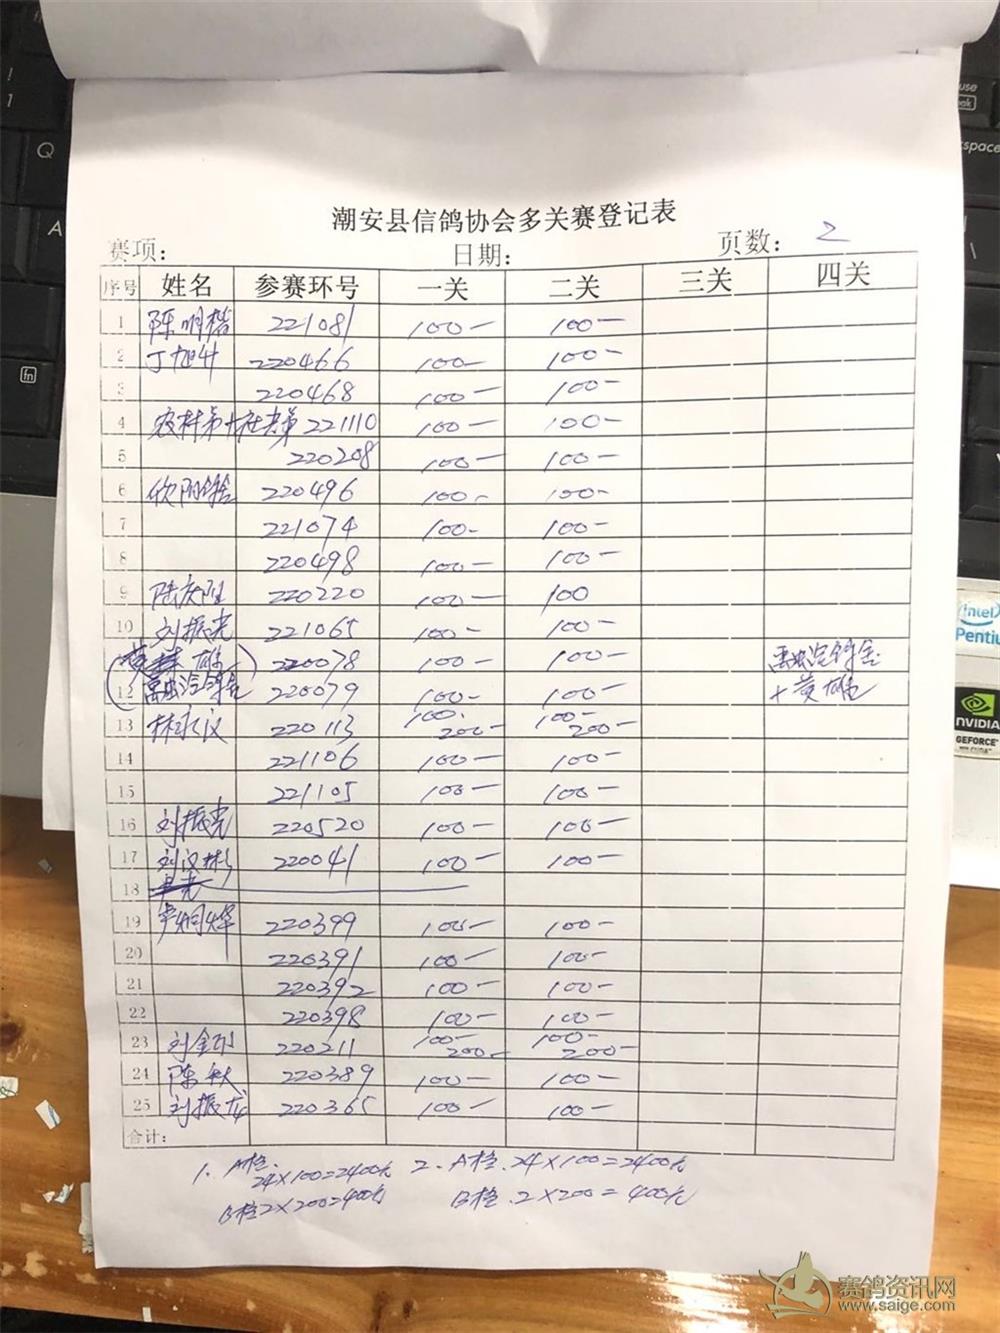 潮安县信鸽协会多关赛登记表
赛项: 日期: 页数: 2
序号 姓名 参赛环号 一关 二关 三关 四关
1 陈明楷 221081 100- 100-
2 丁旭升 220466 100- 100-
3 220468 100- 100-
4 农村第 221110 100- 100-
5 220208 100- 100-
6 欣阳鸽舍 220496 100- 100-
7 221074 100- 100-
8 220498 100- 100-
9 陆庆 220220 100- 100
10 刘振光 221065 100- 100-
雄 220078 100- 100- 汽鸽舍
12 汽鸽舍 220079 100- 100- +黄雄
13 林永汉 220113 100- 200- 100- 200-
14 221106 100- 100-
15 221105 100- 100-
16 刘振光 220520 100- 100-
17 刘汉彬 220041 100- 100-
18
19 220399 100- 100-
20 220391 100- 100-
21 220392 100- 100-
22 220398 100- 100-
23 刘金 220211 100- 200- 100- 200-
24 陈秋 220389 100- 100-
25 刘振龙 220365 100- 100-
合计:
1. A档. 24×100=2400元 2. A档. 24×100=2400元
B档 2×200=400元 B档. 2×200=400元
赛鸽资讯网
www.saige.com
Q
A
fn
!
1
use
eak
kspace
intel
Pentiu
NVIDIA
GEFORCE